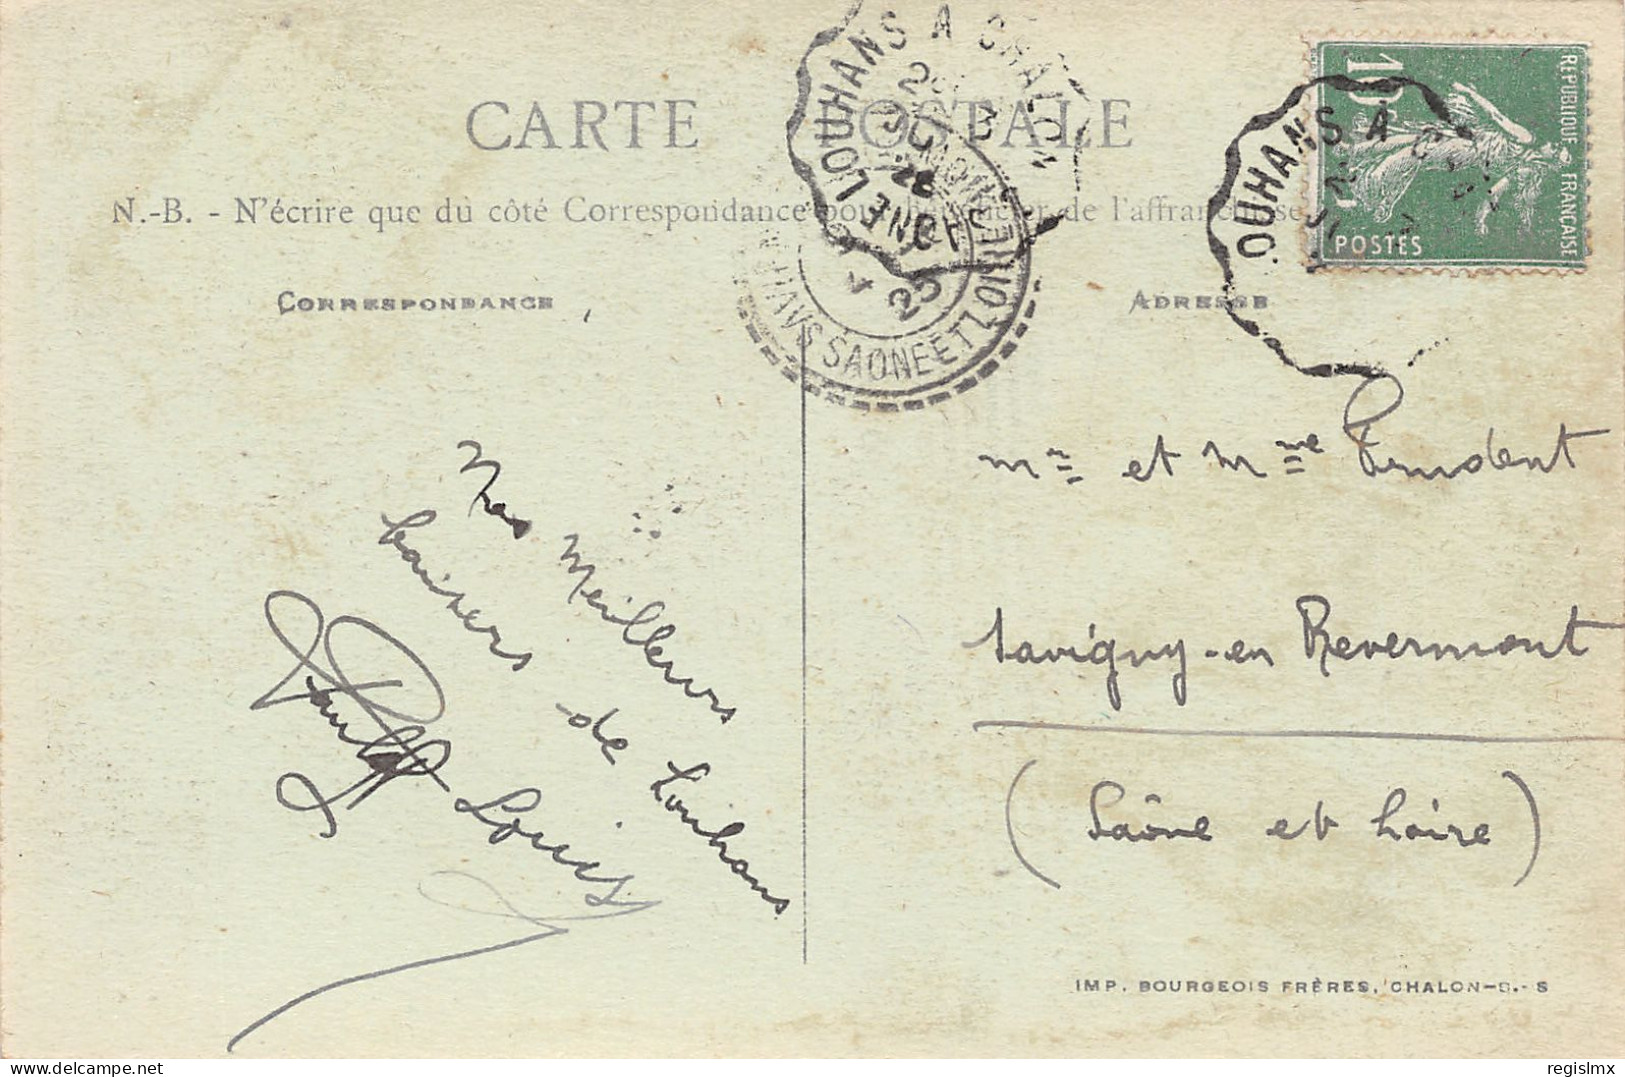 CARTE POSTALE
N.-B. - N'écrire que du côté Correspondance pour bénéficier de l'affranchisse
CORRESPONDANCE
ADRESSE
LOUHANS A CHALON
SAONE ET LOIRE
25
OUHANS A C
15
REPUBLIQUE FRANCAISE
POSTES
Nos Meilleurs
baisers de Louhans
Louis
Mr et Mme Prudent
Savigny-en Revermont
(Saône et Loire)
IMP. BOURGEOIS FRÈRES, CHALON-S.-S
regislmx